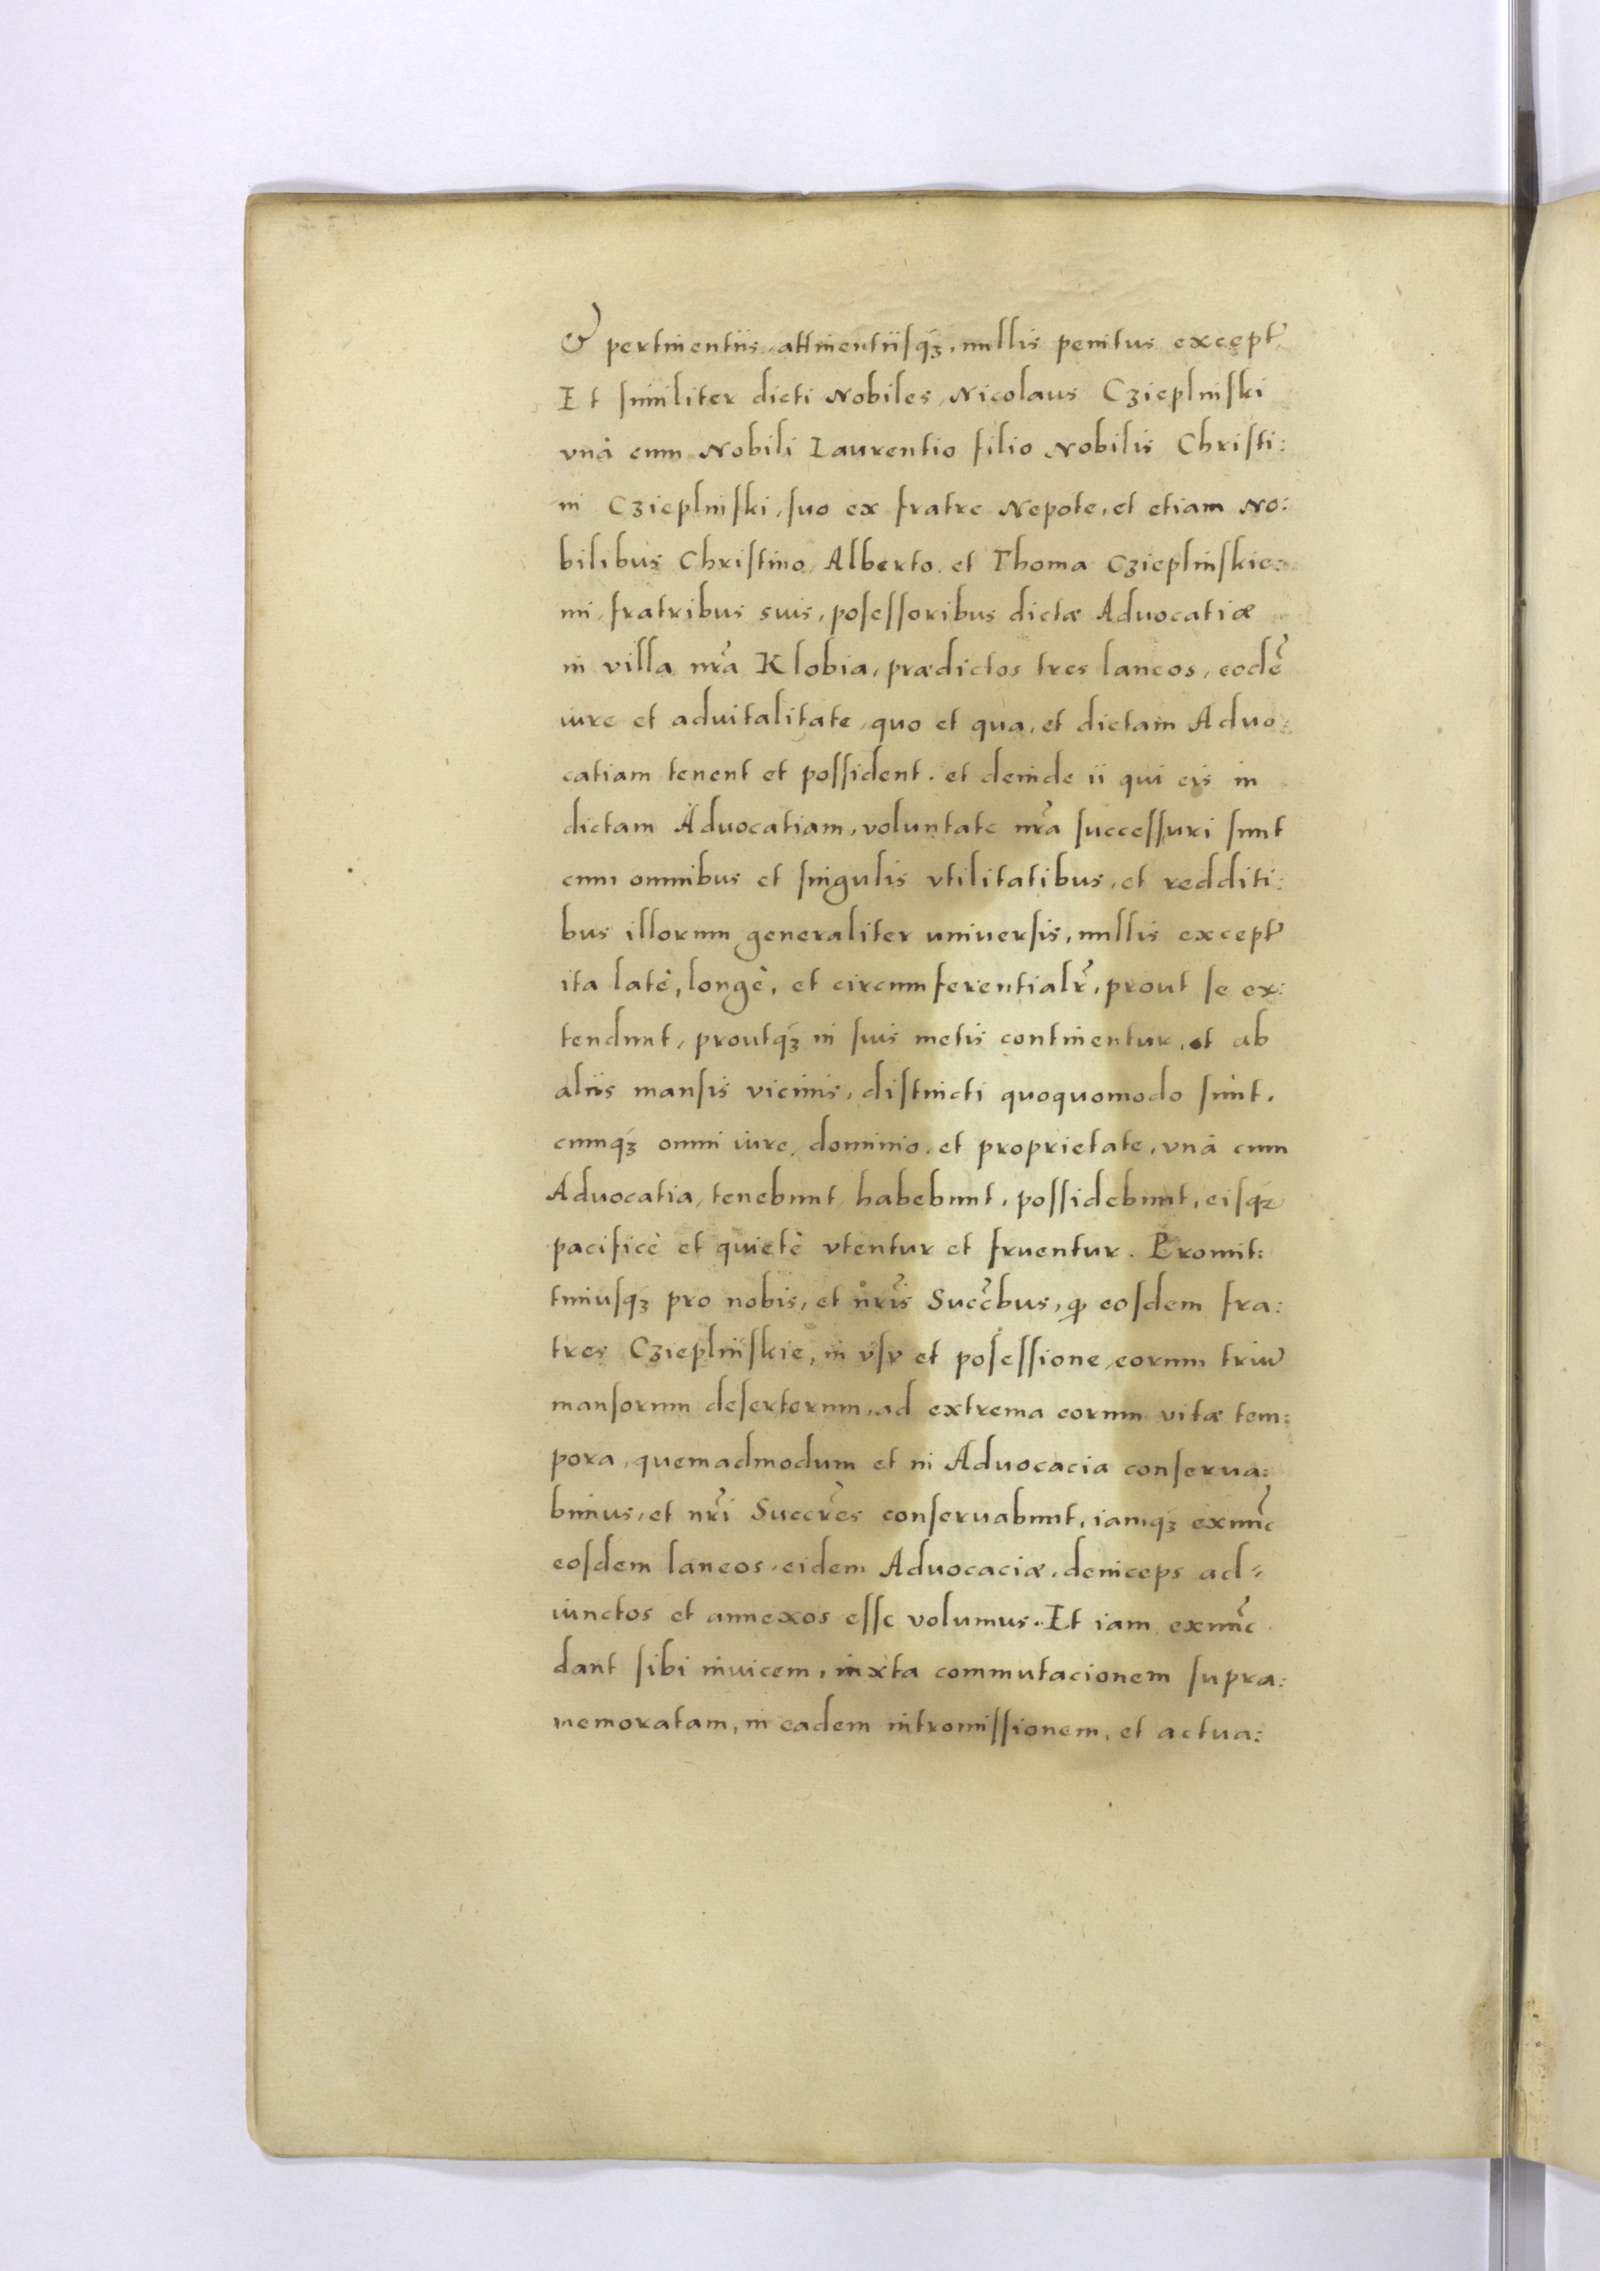 & pertinentiis, attinentiisq́ꝫ, nullis penitus except̃.
Et similiter dicti Nobiles, Nicolaus Czieplinſki
vnà cum Nobili Laurentio filio Nobilis Chriſti:
ni Czieplinſki, ſuo ex fratre Nepote, et etiam No:
bilibus Chriſtino, Alberto, et Thoma Czieplinſkie:
mi, fratribus suis, poſeſſoribus dictæ Aduocatiæ
in villa nr̃a Klobia, prædictos tres laneos, eodẽ
iure et aduitalitate, quo et qua, et dictam Aduo:
catiam tenent et poſſident. et deinde ii qui eis in
dictam Aduocatiam, voluntate nr̃a ſucceſſuri ſunt
cum omnibus et ſingulis vtilitatibus, et redditi:
bus illorum generaliter uniuerſis, nullis except̃
ita latè, longè, et circumferentialr̃, prout ſe ex:
tendunt, proutq́ꝫ in ſuis metis continentur, et ab
aliis manſis vicinis, diſtincti quoquomodo ſunt.
cumq́ꝫ omni iure, dominio, et proprietate, vnà cum
Aduocatia, tenebunt, habebunt, poſſidebunt, eiſq́ꝫ
pacificè et quietè vtentur et fruentur. Promit:
timuſq́ꝫ pro nobis, et nr̃is Succc̃bus, ꝙ eoſdem fra:
tres Czieplinſkie, in vſv et poſeſſione, eorum triũ
manſorum deſertorum, ad extrema eorum vitæ tem:
pora, quemadmodum et in Aduocacia conſerua:
bimus, et nr̃i Succr̃es conſeruabunt, iamq́ꝫ exnũc
eoſdem laneos, eidem Aduocaciæ, deniceps ad:
iunctos et annexos eſſe volumus. Et iam exnũc
dant ſibi inuicem, iuxta commutacionem ſupra:
memoratam, in eadem intromiſſionem, et actua: